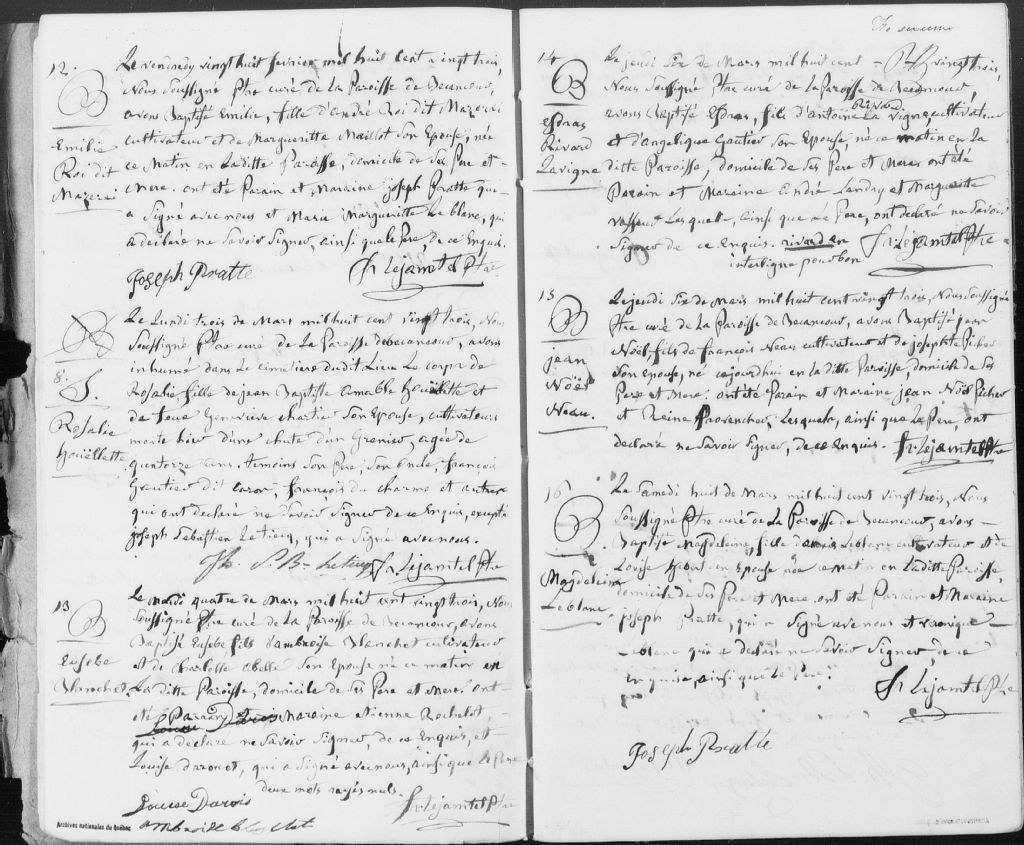 12.
B
Emilie
Roi dit
Mazerai
Le vendredy vingt huit fevrier mil huit cent vingt trois,
Nous Soussigné Ptre curé de La Paroisse de Becancour,
avons Baptisé Emilie, fille d'andré Roi dit Mazerai
cultivateur et de Margueritte Maillot Son Epouse, née
ce Matin en Laditte Paroisse, domicile de Ses Pere et
Mere. ont été Parain et Maraine joseph Pratte qui
a Signé avec nous et Marie Margueritte Le blanc, qui
a declaré ne Savoir Signer, ainsi que le Pere, de ce Enquis.
Joseph Pratte
Fr Lejamtel Ptre
8.
S.
Rosalie
houëllette
Le Lundi trois de Mars mil huit cent vingt trois, Nous
Soussigné Ptre curé de La Paroisse de becancour, avons
inhumé dans Le cimetiere dudit Lieu Le corps de
Rosalie fille de jean Baptiste amable houëllette et
de feue Genevieve chartier Son Epouse, cultivateurs
morte hier d'une chute d'un Grenier, agée de
quatorze ans. temoins Son Pere, Son oncle, françois
Gautier dit caron, françois du charme et autres
qui ont declaré ne Savoir Signer de ce Enquis, excepté
joseph Sebastien Letiecq, qui a Signé avec nous.
Fr Lejamtel Ptre
13
B
Eusebe
Blanchet
Le Mardi quatre de Mars mil huit cent vingt trois, Nous
Soussigné Ptre curé de La Paroisse de Becancour, avons
Baptisé Eusebe fils d'ambroise Blanchet cultivateur
et de Charlotte Son Epouse né ce matin en
La ditte Paroisse, domicile de Ses Pere et Mere. ont
été Parain Maraine etienne Rochelot,
qui a declaré ne Savoir Signer, de ce Enquis, et
Louise qui a Signé avec nous, ainsi que Le Pere
deux mots rayés nuls.
Louise Darois
Fr Lejamtel Ptre
Archives nationales du Québec
14
B
Esdras
Rivard
Lavigne
Le jeudi Six de Mars mil huit cent vingt trois,
Nous Soussigné Ptre curé de La Paroisse de Becancour,
avons Baptisé Esdras, fils d'antoine Rivard La vigne cultivateur
et d'angelique Gautier Son Epouse, né ce matin en La
ditte Paroisse, domicile de Ses Pere et Mere. ont été
Parain et Maraine André Landry et Margueritte
vasseur Lesquels, ainsi que Le Pere, ont declaré ne Savoir
Signer de ce Enquis. rivard en
interligne pour bon
Fr Lejamtel Ptre
15
B
jean
Noël
Neau.
Le jeudi Six de Mars mil huit cent vingt trois, Nous Soussigné
Ptre curé de La Paroisse de Becancour, avons Baptisé jean
Noël fils de François Neau cultivateur et de josephte Picher
Son Epouse, né cejourdhui en La ditte Paroisse, domicile de Ses
Pere et Mere. ont été Parain et Maraine jean Noël Picher
et Reine Provencher, Lesquels, ainsi que Le Pere, ont
declaré ne Savoir Signer, de ce Enquis.
Fr Lejamtel Ptre
16
B.
Magdeleine
Leblanc
Le Samedi huit de Mars mil huit cent vingt trois, Nous
Soussigné Ptre curé de La Paroisse de Becancour, avons
Baptisé Magdeleine, fille Leblanc cultivateur et de
Louise hebert Son Epouse née ce Matin en Laditte Paroisse,
domicile de Ses Pere et Mere. ont été Parain et Maraine
joseph Pratte, qui a Signé avec nous et
Leblanc qui a declaré ne Savoir Signer, de ce
Enquise, ainsi que Le Pere.
Fr Lejamtel Ptre
Joseph Pratte